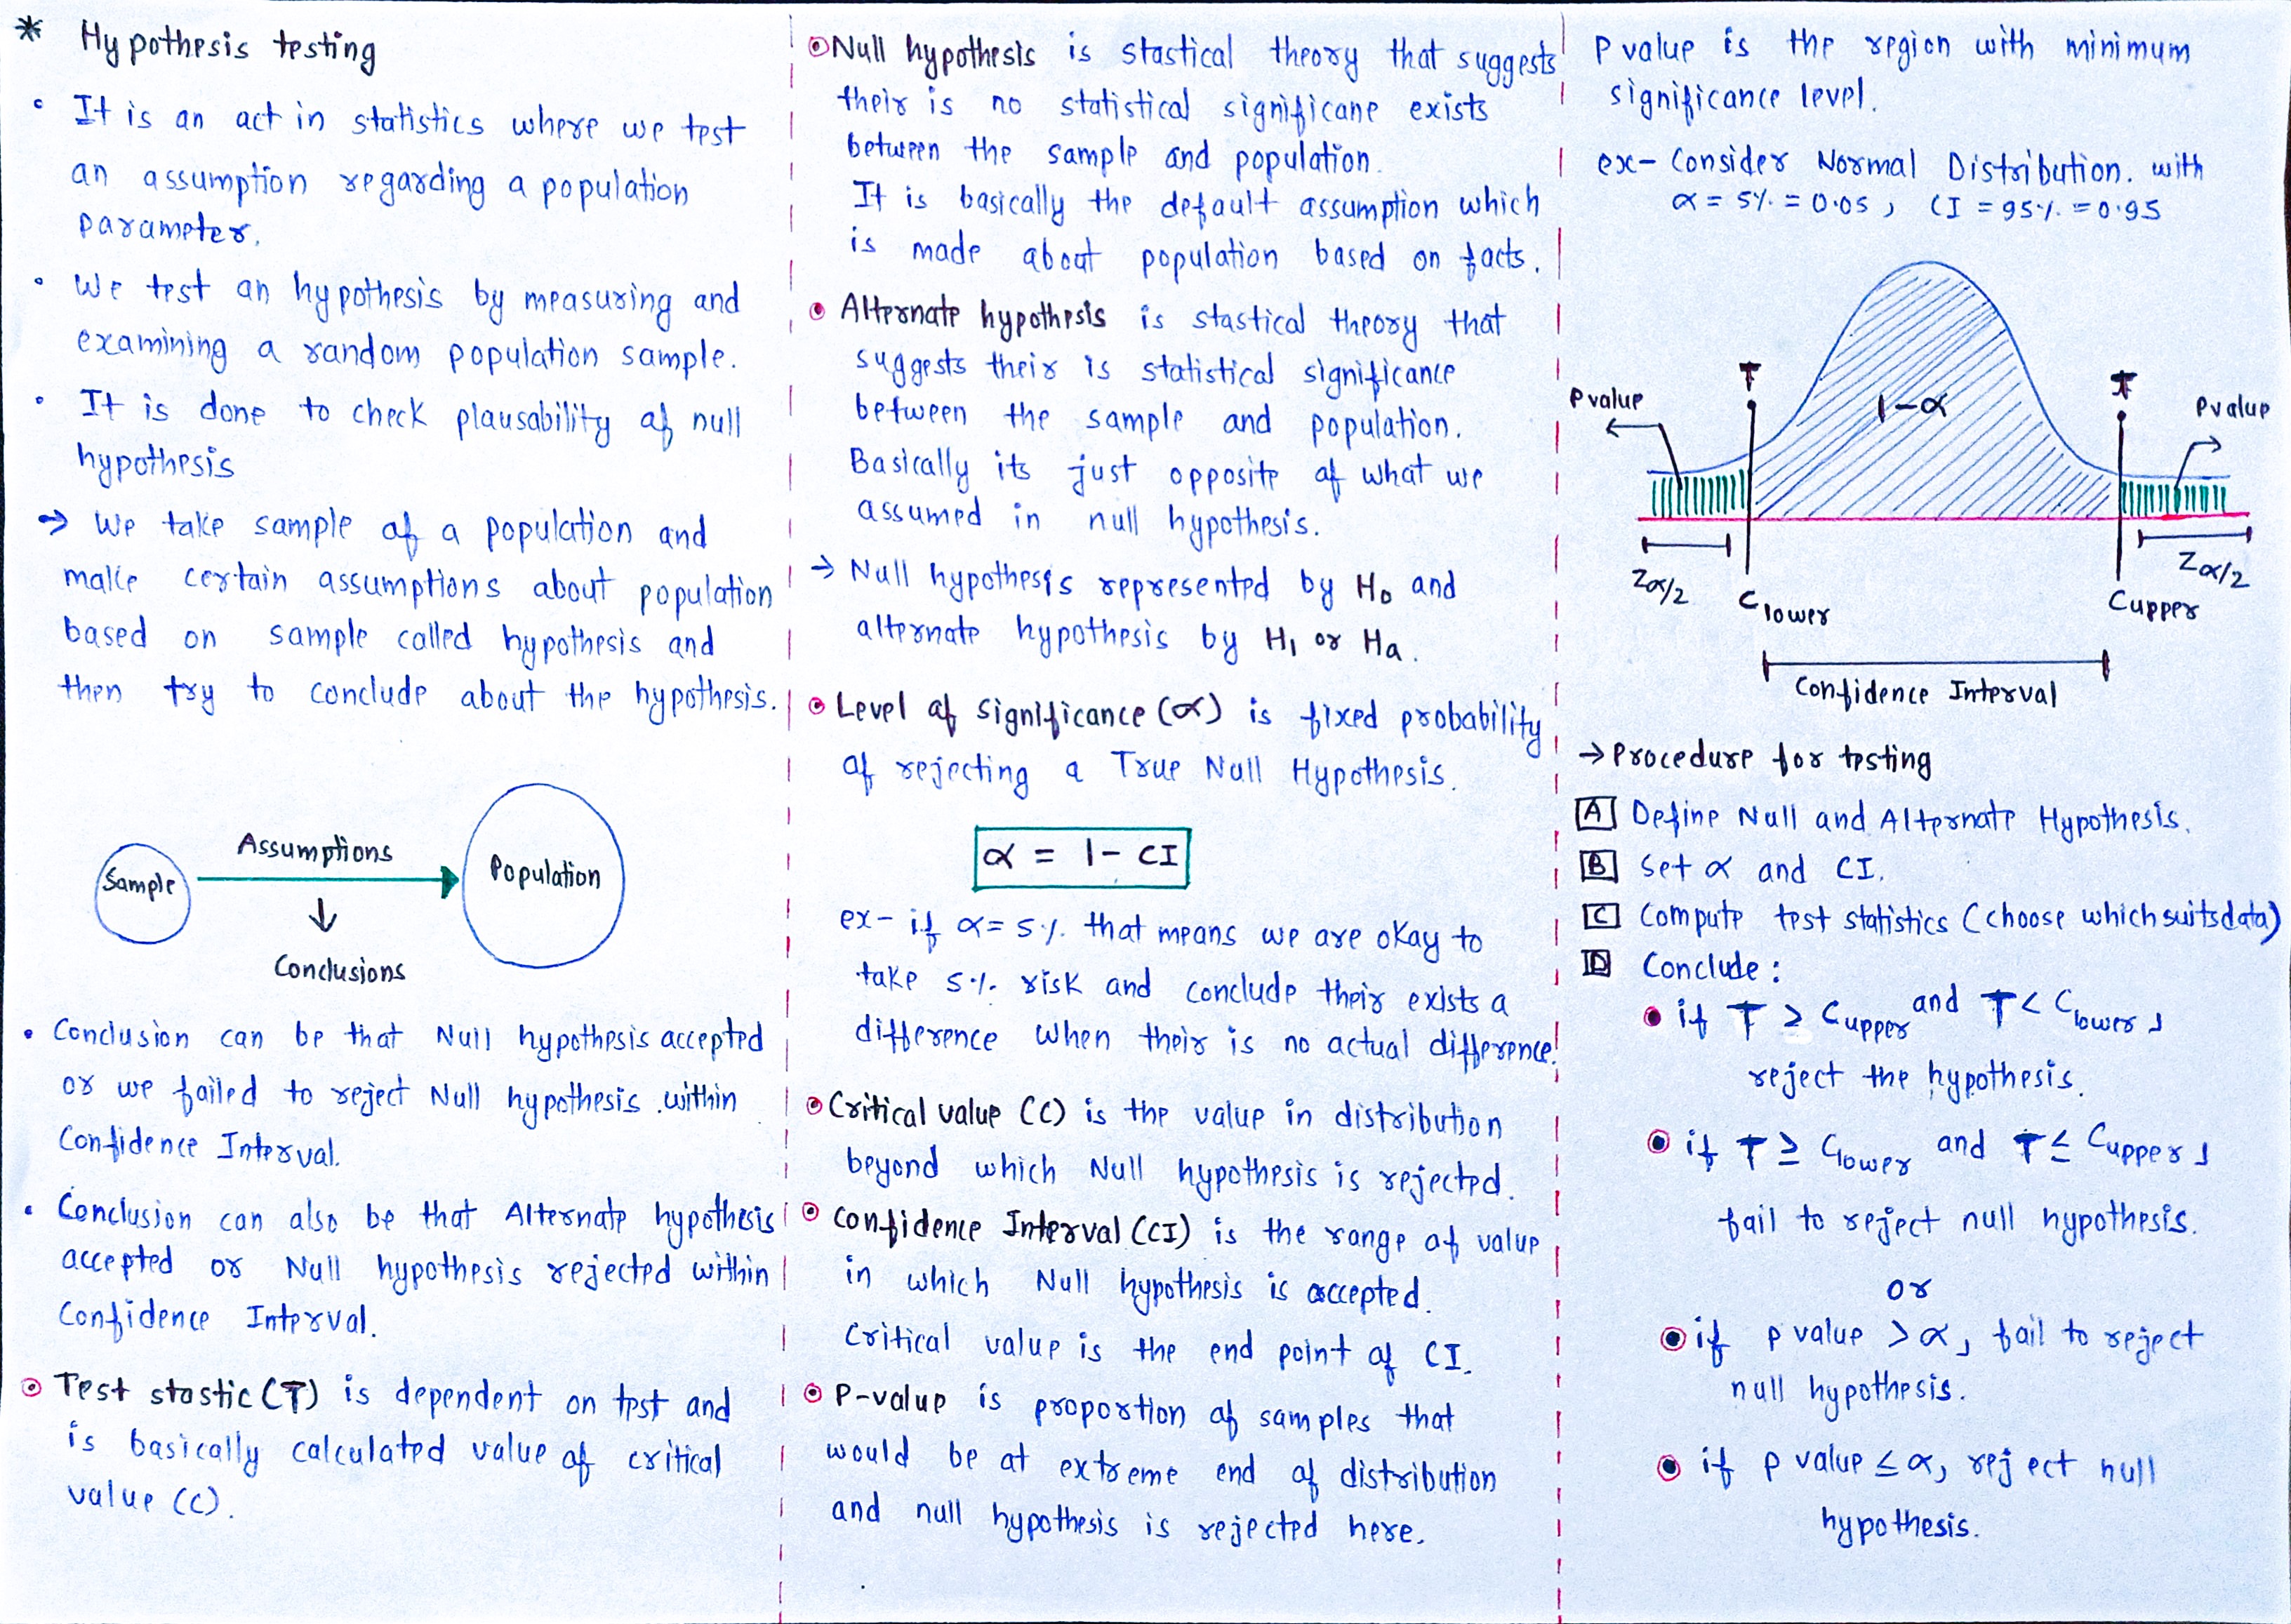 * Hypothesis testing
• It is an act in statistics where we test
an assumption regarding a population
parameter.
• We test an hypothesis by measuring and
examining a random population sample.
• It is done to check plausability of null
hypothesis
→ We take sample of a population and
make certain assumptions about population
based on sample called hypothesis and
then try to conclude about the hypothesis.
Sample
Assumptions
Population
Conclusions
• Conclusion can be that Null hypothesis accepted
or we failed to reject Null hypothesis .within
Confidence Interval.
• Conclusion can also be that Alternate hypothesis
accepted or Null hypothesis rejected within
Confidence Interval.
Test stastic (T) is dependent on test and
is basically calculated value of critical
value (C).
Null hypothesis is stastical theory that suggests
their is no statistical significane exists
between the sample and population.
It is basically the default assumption which
is made about population based on facts.
Alternate hypothesis is stastical theory that
suggests their is statistical significance
between the sample and population.
Basically its just opposite of what we
assumed in null hypothesis.
→ Null hypothesis represented by H₀ and
alternate hypothesis by H₁ or Ha.
Level of significance (α) is fixed probability
of rejecting a True Null Hypothesis.
α = 1 - CI
ex- if α = 5% that means we are okay to
take 5% risk and conclude their exists a
difference when their is no actual difference.
Critical value (C) is the value in distribution
beyond which Null hypothesis is rejected.
Confidence Interval (CI) is the range of value
in which Null hypothesis is accepted.
Critical value is the end point of CI.
P-value is proportion of samples that
would be at extreme end of distribution
and null hypothesis is rejected here.
P value is the region with minimum
significance level.
ex- Consider Normal Distribution. with
α = 5% = 0.05, CI = 95% = 0.95
T
T
P value
1-α
P value
Zα/2
Zα/2
Clower
Cupper
Confidence Interval
→ Procedure for testing
A Define Null and Alternate Hypothesis.
B Set α and CI.
C Compute test statistics (choose which suits data)
D Conclude:
if T ≥ Cupper and T < Clower,
reject the hypothesis.
if T ≥ Clower and T ≤ Cupper,
fail to reject null hypothesis.
or
if p value > α, fail to reject
null hypothesis.
if p value ≤ α, reject null
hypothesis.